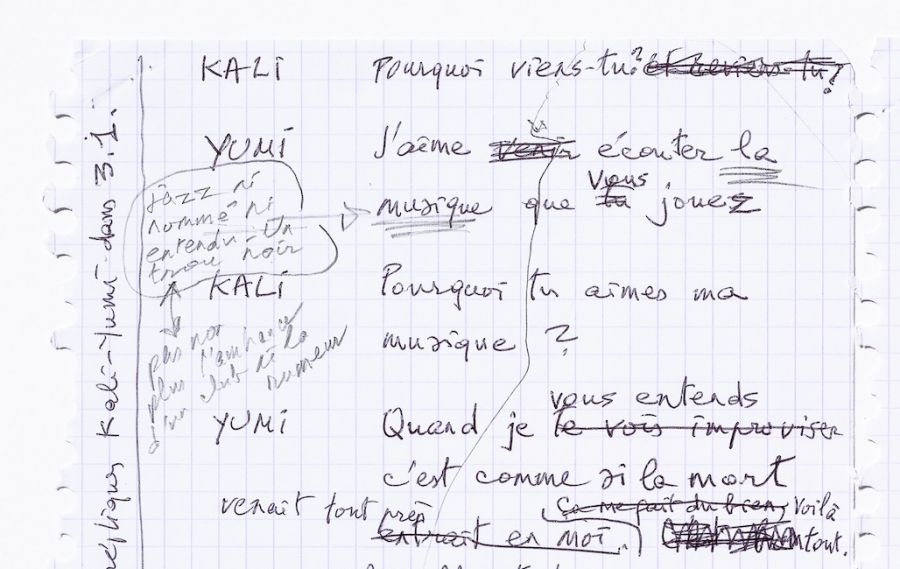 répliques Kali-Yumi dans 3.1.
KALI Pourquoi viens-tu? et reviens-tu?
YUMI J'aime venir écouter la
musique que tu vous jouez
jazz ni
nommé ni
entendu. Un
trou noir
KALI Pourquoi tu aimes ma
musique ?
pas non
plus l'ambiance
d'un club ni la
rumeur
YUMI Quand je te vois improviser vous entends
c'est comme si la mort
venait tout près
entrait en moi. ça me fait du bien, voilà
tout.